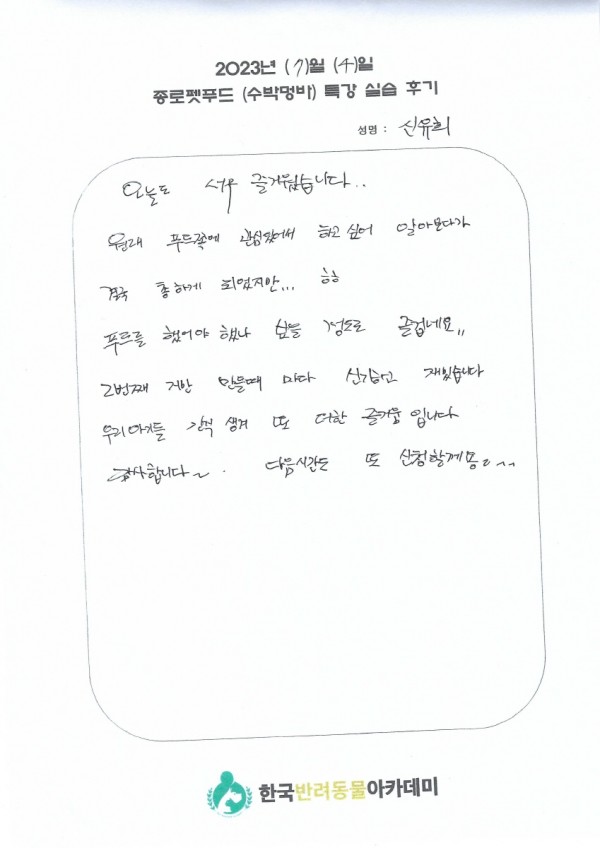 2023년 (7)월 (4)일
종로펫푸드 (수박멍바) 특강 실습 후기
성명 : 신유희
오늘도 너무 즐거웠습니다..
원래 푸드쪽에 관심있어서 하고 싶어 알아보다가
결국 하게 되었지만... ㅎㅎ
푸드를 했어야 했나 싶을 정도로 즐겁네요,,
2번째 만들때 마다 신기하고 재밌습니다
우리아가들 간식 생겨 또 더한 즐거움 입니다
감사합니다~. 다음시간도 또 신청할께용~~
한국반려동물아카데미